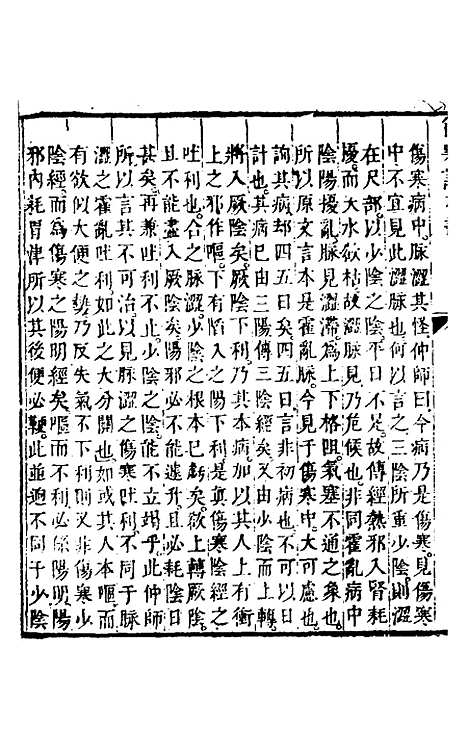 傷寒病中脈澀其怪仲師曰今病乃是傷寒見傷寒
中不宜見此澀脈也何以言之三陰所重少陰則澀
在尺部以少陰之陰平日不足故傳經熱邪入腎耗
擾而大水欲枯故澀脈見乃危候也非同霍亂病中
陰陽擾亂脈見澀滯為上下格阻氣塞不通之象也
所以原文言本是霍亂脈今見于傷寒中大可慮也
詢其病却四五日矣四五日言非初病也不可以日
計也其病已由三陽傳三陰經矣又由少陰而上轉
將入厥陰矣下利乃其本病加以其人上有衝
上之邪作嘔下有陷入之陽下利是真傷寒陰經之
吐利也合之脈澀少陰之根本已虧矣欲上轉厥陰
且不能盡入厥陰矣陽邪必不能遽升且必耗陰日
甚矣再兼吐利不止少陰之陰能不立竭乎此仲師
所以言其不可治以見脈澀之傷寒吐利不同于脈
澀之霍亂吐利如此之大分闗也如或其人本嘔而
有欲似大便之勢乃反失氣不下利又非傷寒中
陰經而為傷寒之陽明經矣嘔而不利必係陽明陽
邪內耗胃津所以其後便必鞕此並逈不同于少陰